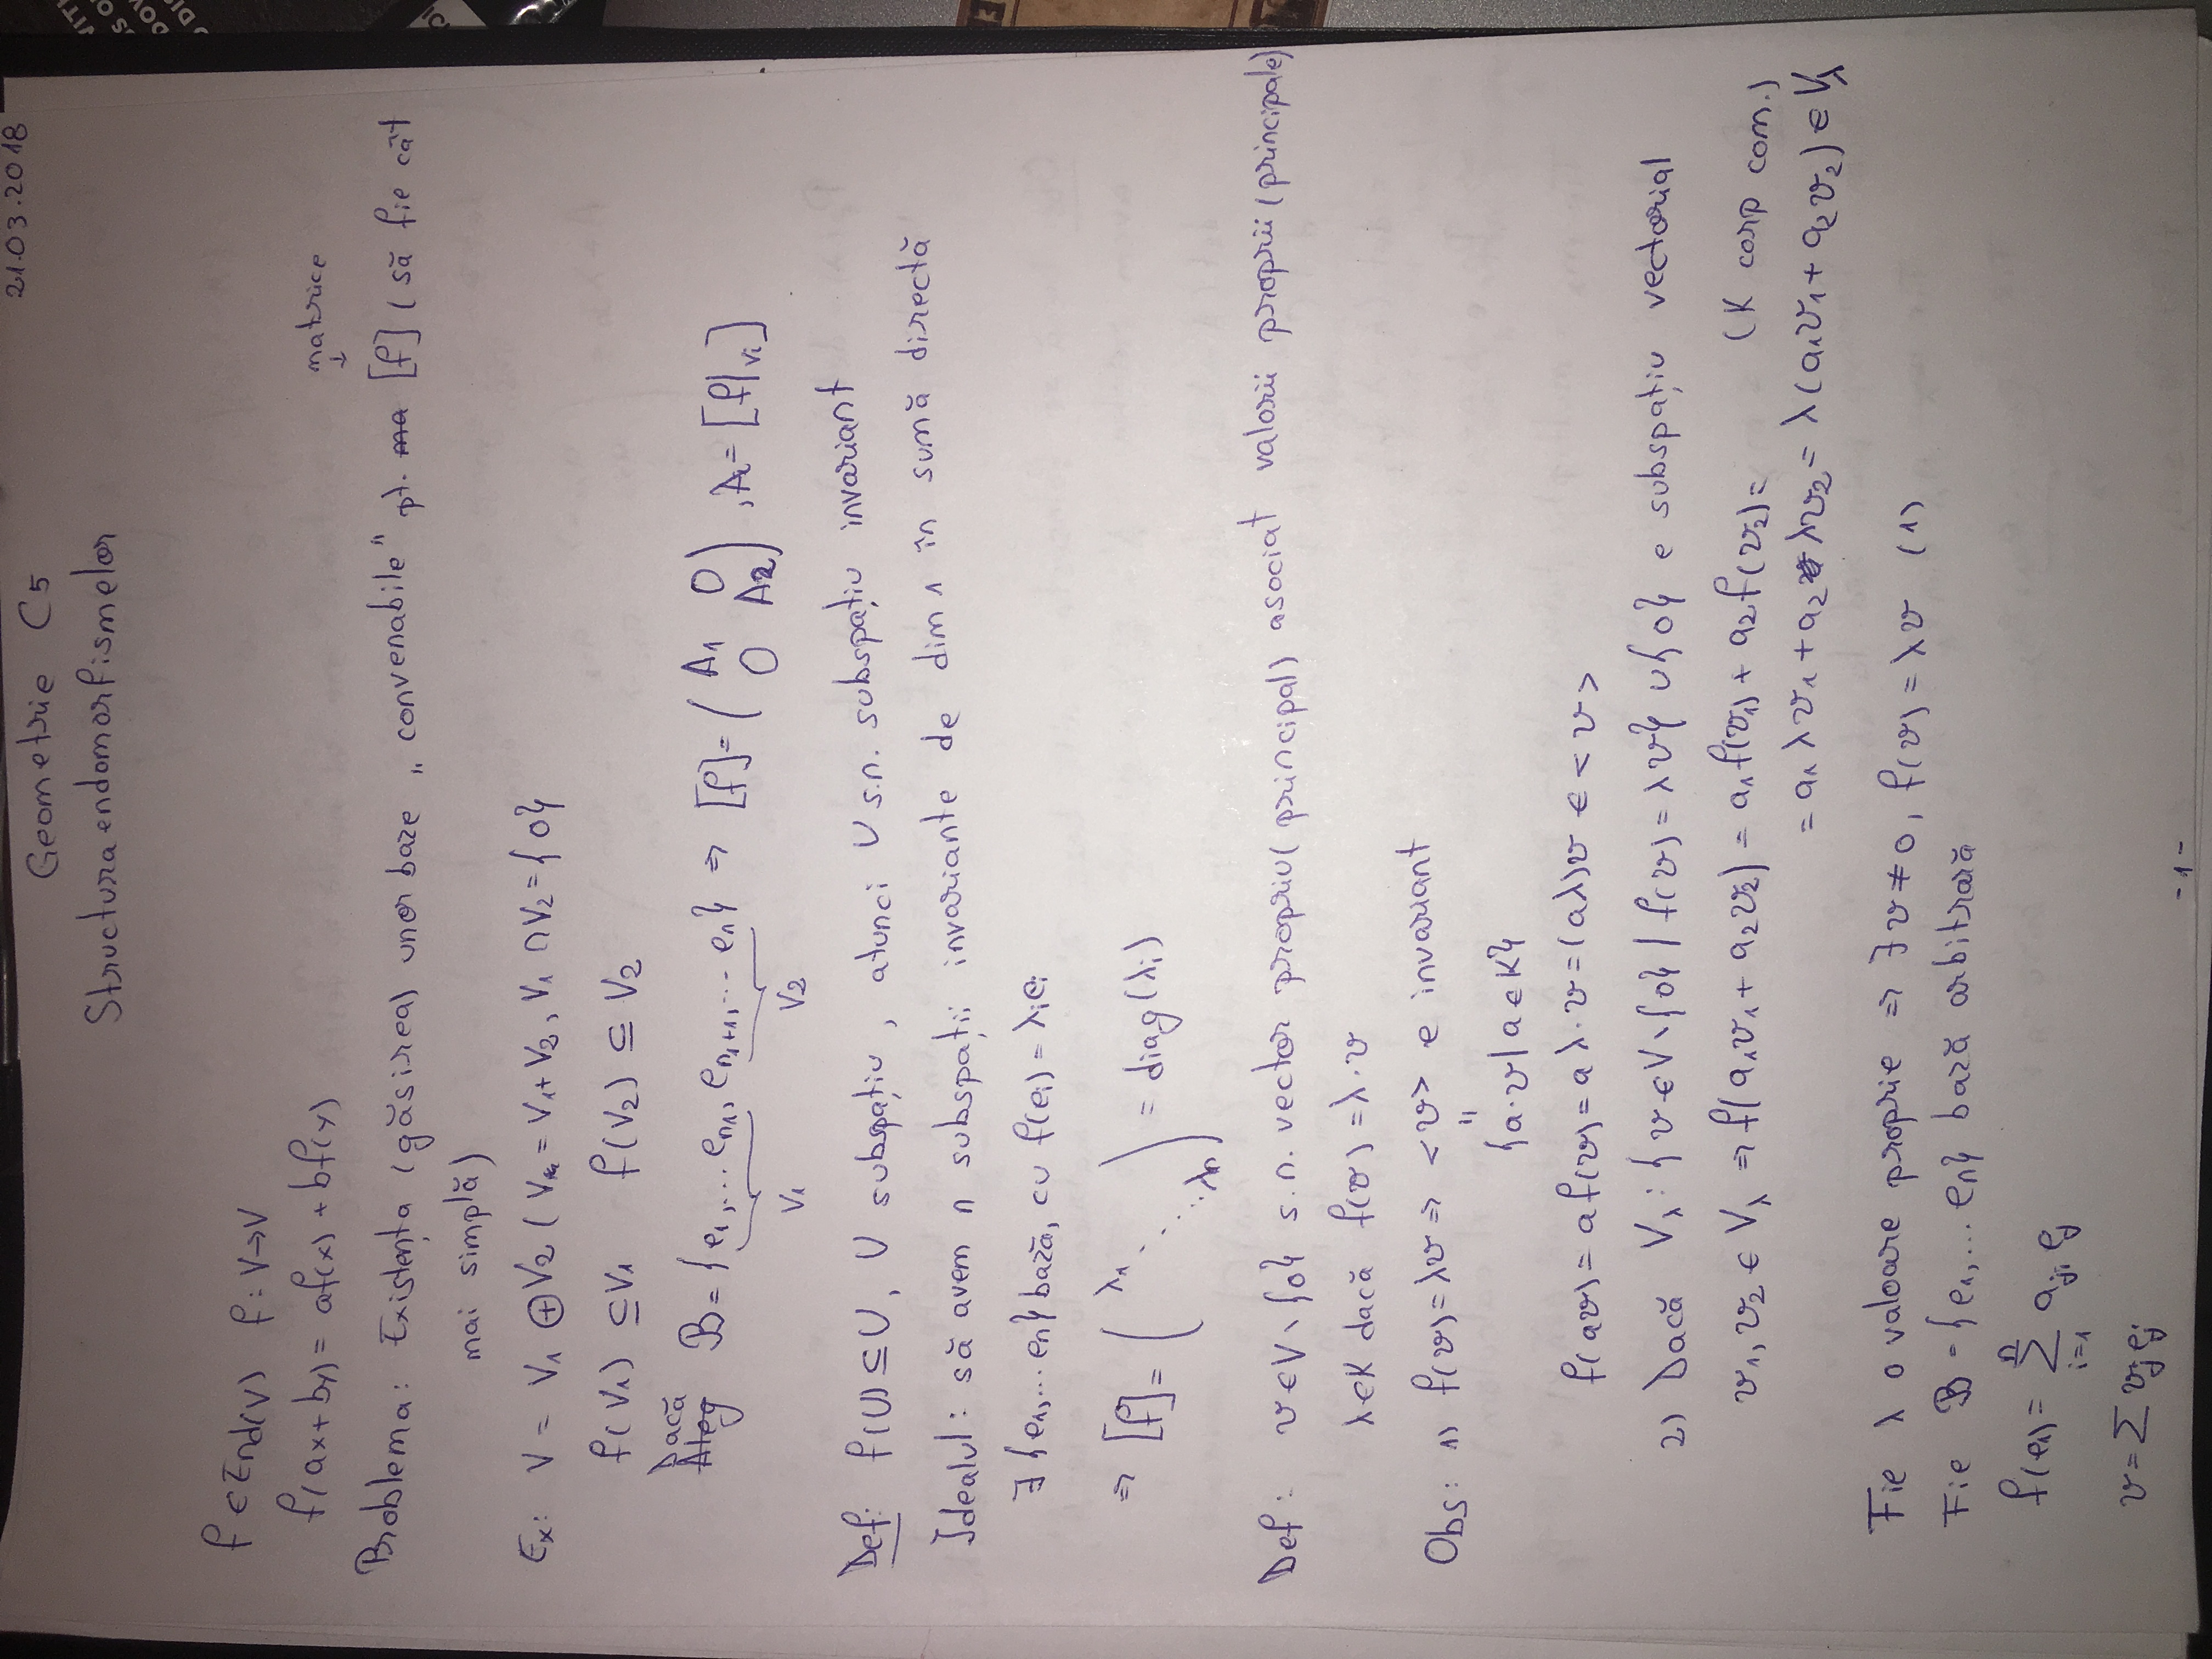 21.03.2018
Geometrie C5
Structura endomorfismelor
f ∈ End(V) f: V→V
f(ax+by) = af(x) + bf(y)
matrice
↓
Problema: Existența (găsirea) unor baze „convenabile" pt. ~~ma~~ [f] (să fie cât
mai simplă)
Ex: V = V₁ ⊕ V₂ ( V = V₁+V₂, V₁ ∩ V₂ = {0}
f(V₁) ⊆ V₁ f(V₂) ⊆ V₂
Dacă
~~Aleg~~ B = {e₁,... eₙ₁, eₙ₁₊₁,... eₙ} ⇒ [f] = ( A₁ 0
0 A₂ ) , Aᵢ = [f|ᵥᵢ]
V₁ V₂
Def: f(U) ⊆ U, U subspațiu, atunci U s.n. subspațiu invariant
Idealul: să avem n subspații invariante de dim 1 în sumă directă
∃ {e₁,... eₙ} bază, cu f(eᵢ) = λᵢeᵢ
⇒ [f] = ( λ₁ ⋱ λₙ ) = diag(λᵢ)
Def: v ∈ V \ {0} s.n. vector propriu (principal) asociat valorii proprii (principale)
λ ∈ K dacă f(v) = λ·v
Obs: 1) f(v) = λv ⇒ <v> e invariant
"
{a·v | a ∈ K}
f(av) = a f(v) = a λ·v = (aλ)v ∈ <v>
2) Dacă V_λ : {v ∈ V \ {0} | f(v) = λv} ∪ {0} e subspațiu vectorial
v₁, v₂ ∈ V_λ ⇒ f(a₁v₁ + a₂v₂) = a₁f(v₁) + a₂f(v₂) = (K corp com.)
= a₁λv₁ + a₂λv₂ = λ(a₁v₁ + a₂v₂) ∈ V_λ
Fie λ o valoare proprie ⇒ ∃ v ≠ 0, f(v) = λv (1)
Fie B = {e₁,... eₙ} bază arbitrară
f(e₁) = Σⁿᵢ₌₁ aⱼᵢ eⱼ
v = Σ vⱼeⱼ
-1-